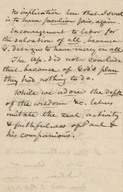 no implication here that Israel
is to have position again.
Encouragement to labor for
the salvation of all, because
G. designs to have mercy on all.
The Ap. did not conclude
that because of God's plan
they had nothing to do.
While we adore the depth
of the wisdom &c. let us
imitate the zeal, activity
& faithfulness of Paul &
his companions.